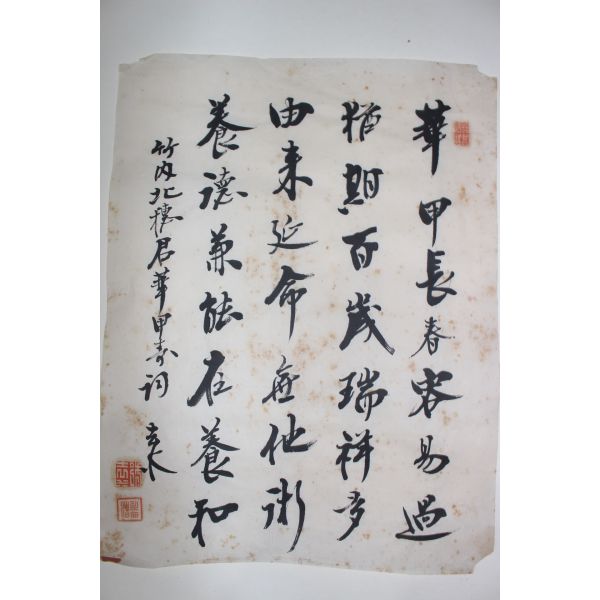 華甲長春容易過
猶期百歲瑞祥多
由来延命無他術
養德兼能在養和
竹内北穗君華甲寿詞